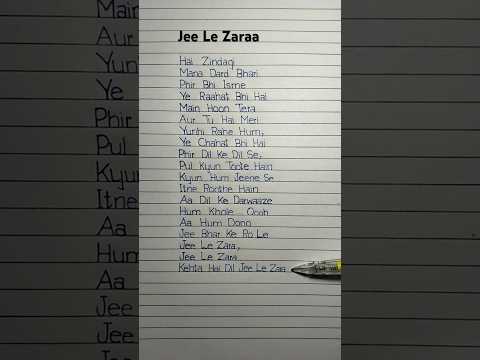 Jee Le Zaraa
Hai Zindagi
Mana Dard Bhari
Phir Bhi Isme
Ye Raahat Bhi Hai
Main Hoon Tera
Aur Tu Hai Meri
Yunhi Rahe Hum,
Ye Chahat Bhi Hai
Phir Dil Ke Dil Se,
Pul Kyun Toote Hain
Kyun Hum Jeene Se
Itne Roothe Hain
Aa Dil Ke Darwaaze
Hum Khole Oooh
Aa Hum Dono
Jee Bhar Ke Ro Le
Jee Le Zara,
Jee Le Zara
Kehta Hai Dil Jee Le Zara